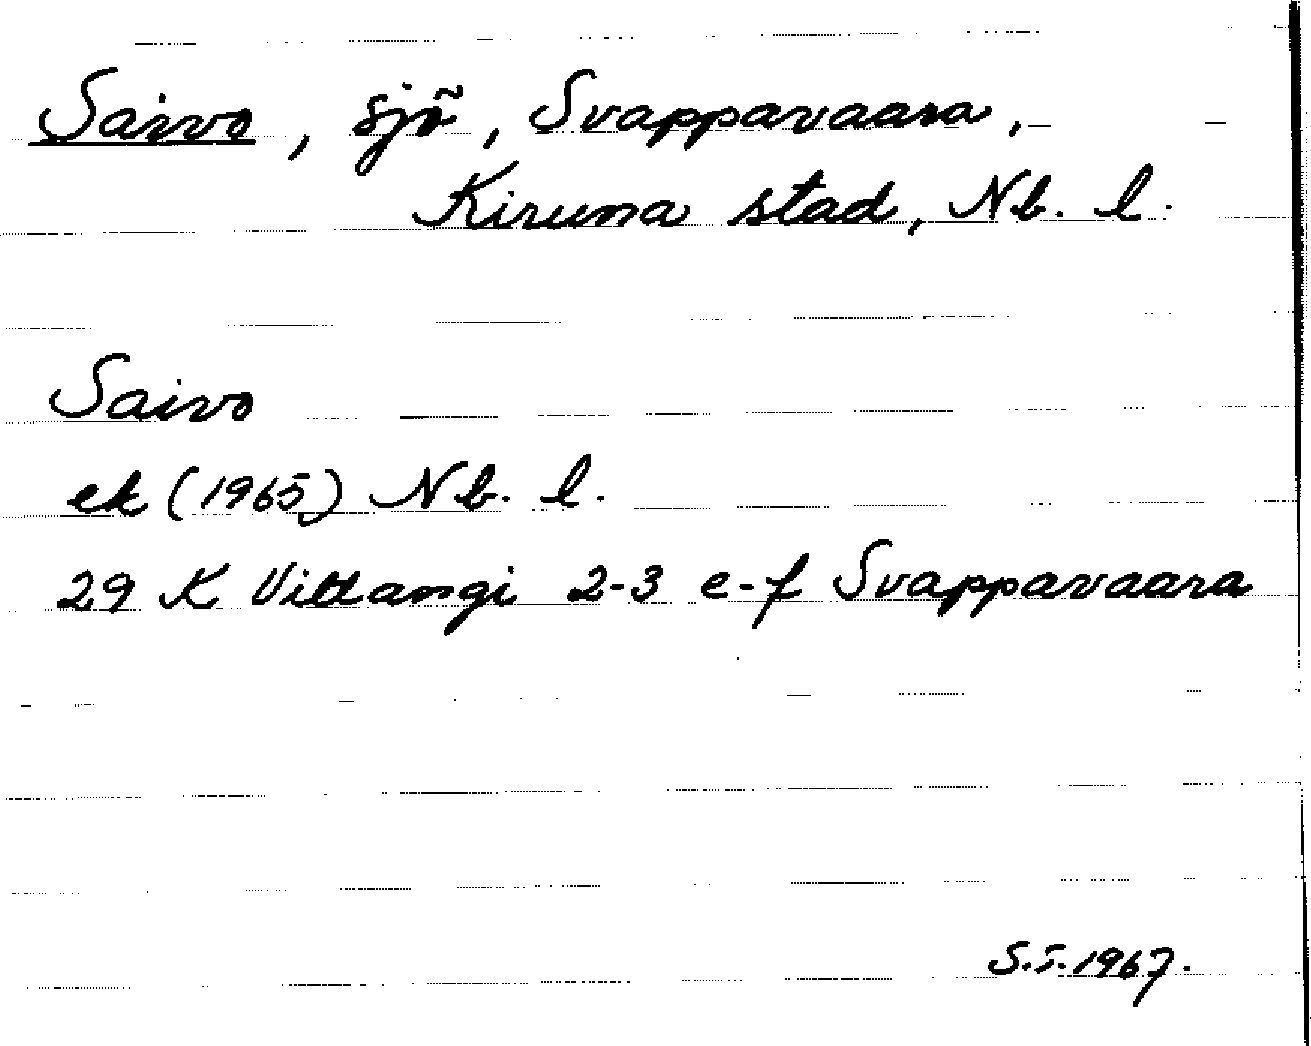 Saivo, sjö, Svappavaara,
Kiruna stad, Nb. l.
Saivo
ek (1965) Nb. l.
29 K Vittangi 2-3 e-f Svappavaara
S.I. 1967.